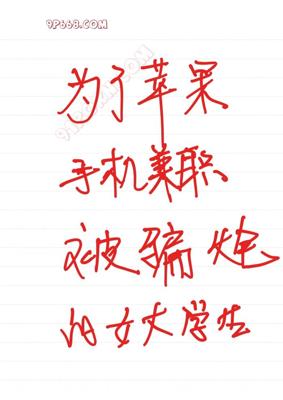 9P668.COM
为了苹果
手机兼职
被骗炮
的女大学生